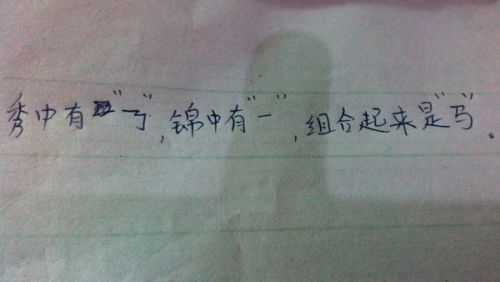 秀中有“ㄋ”,锦中有“一”,组合起来是“马”。